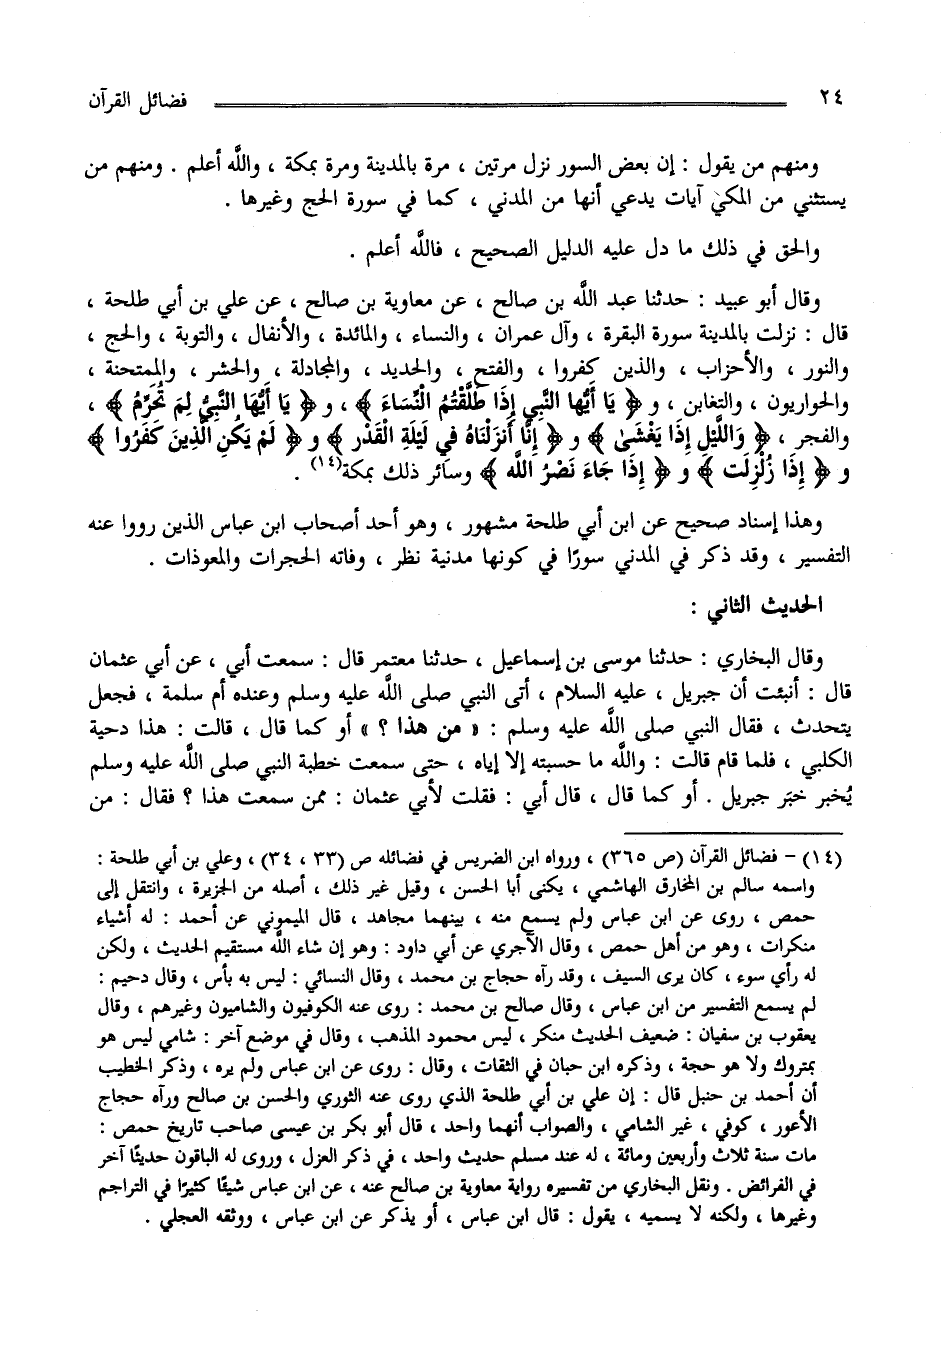 ٢٤ فضائل القرآن
ومنهم من يقول : إن بعض السور نزل مرتين ، مرة بالمدينة ومرة بمكة ، واللَّه أعلم . ومنهم من
يستثني من المكي آيات يدعي أنها من المدني ، كما في سورة الحج وغيرها .
والحق في ذلك ما دل عليه الدليل الصحيح ، فاللَّه أعلم .
وقال أبو عبيد : حدثنا عبد اللَّه بن صالح ، عن معاوية بن صالح ، عن علي بن أبي طلحة ،
قال : نزلت بالمدينة سورة البقرة ، وآل عمران ، والنساء ، والمائدة ، والأنفال ، والتوبة ، والحج ،
والنور ، والأحزاب ، والذين كفروا ، والفتح ، والحديد ، والمجادلة ، والحشر ، والممتحنة ،
والحواريون ، والتغابن ، و ﴿ يَا أَيُّها النَّبِي إِذَا طَلَّقْتُمُ الْنِّسَاءَ ﴾ ، و ﴿ يَا أَيُّهَا النَّبِيُّ لِمَ تُحَرِّمُ ﴾ ،
والفجر ، ﴿ وَاللَّيْلِ إِذَا يَغْشَىٰ ﴾ و ﴿ إِنَّا أَنزَلْنَاهُ فِي لَيْلَةِ الْقَدْرِ ﴾ و ﴿ لَمْ يَكُنِ الَّذِينَ كَفَرُوا ﴾
و ﴿ إِذَا زُلْزِلَت ﴾ و ﴿ إِذَا جَاءَ نَصْرُ اللَّه ﴾ وسائر ذلك بمكة(١٤) .
وهذا إسناد صحيح عن ابن أبي طلحة مشهور ، وهو أحد أصحاب ابن عباس الذين رووا عنه
التفسير ، وقد ذكر في المدني سورًا في كونها مدنية نظر ، وفاته الحجرات والمعوذات .
الحديث الثاني :
وقال البخاري : حدثنا موسى بن إسماعيل ، حدثنا معتمر قال : سمعت أبي ، عن أبي عثمان
قال : أنبئت أن جبريل ، عليه السلام ، أتى النبي صلى اللَّه عليه وسلم وعنده أم سلمة ، فجعل
يتحدث ، فقال النبي صلى اللَّه عليه وسلم : « من هذا ؟ » أو كما قال ، قالت : هذا دحية
الكلبي ، فلما قام قالت : واللَّه ما حسبته إلا إياه ، حتى سمعت خطبة النبي صلى اللَّه عليه وسلم
يُخبر خبَر جبريل . أو كما قال ، قال أبي : فقلت لأبي عثمان : ممن سمعت هذا ؟ فقال : من
(١٤) - فضائل القرآن (ص ٣٦٥) ، ورواه ابن الضريس في فضائله ص (٣٣ ، ٣٤) ، وعلي بن أبي طلحة :
واسمه سالم بن المخارق الهاشمي ، يكنى أبا الحسن ، وقيل غير ذلك ، أصله من الجزيرة ، وانتقل إلى
حمص ، روى عن ابن عباس ولم يسمع منه ، بينهما مجاهد ، قال الميموني عن أحمد : له أشياء
منكرات ، وهو من أهل حمص ، وقال الآجري عن أبي داود : وهو إن شاء اللَّه مستقيم الحديث ، ولكن
له رأي سوء ، كان يرى السيف ، وقد رآه حجاج بن محمد ، وقال النسائي : ليس به بأس ، وقال دحيم :
لم يسمع التفسير من ابن عباس ، وقال صالح بن محمد : روى عنه الكوفيون والشاميون وغيرهم ، وقال
يعقوب بن سفيان : ضعيف الحديث منكر ، ليس محمود المذهب ، وقال في موضع آخر : شامي ليس هو
بمتروك ولا هو حجة ، وذكره ابن حبان في الثقات ، وقال : روى عن ابن عباس ولم يره ، وذكر الخطيب
أن أحمد بن حنبل قال : إن علي بن أبي طلحة الذي روى عنه الثوري والحسن بن صالح ورآه حجاج
الأعور ، كوفي ، غير الشامي ، والصواب أنهما واحد ، قال أبو بكر بن عيسى صاحب تاريخ حمص :
مات سنة ثلاث وأربعين ومائة ، له عند مسلم حديث واحد ، في ذكر العزل ، وروى له الباقون حديثًا آخر
في الفرائض . ونقل البخاري من تفسيره رواية معاوية بن صالح عنه ، عن ابن عباس شيئًا كثيرًا في التراجم
وغيرها ، ولكنه لا يسميه ، يقول : قال ابن عباس ، أو يذكر عن ابن عباس ، ووثقه العجلي .